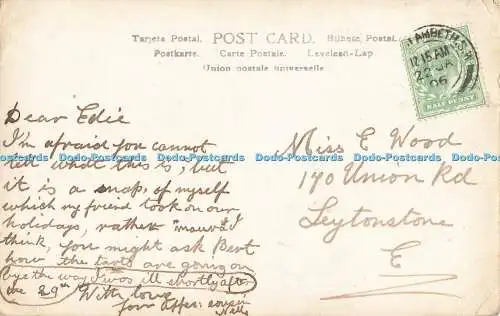 Tarjeta Postal. POST CARD. Bilhete Postal.
Postkarte. Carte Postale. Levelezö-Lap
Union postale universelle
LAMBETH.S.W
12.15 AM
22 JA
06
HALF PENNY
Dear Edie
I'm afraid you cannot
tell what this is, but
it is a snap, of myself
which my friend took on our
holidays, rather "mauvais" I
think, you might ask Bert
how the tarts are going on
bye the way I was ill shortly after
the 29th With love
your affec: cousin
Nells
Miss E Wood
170 Union Rd
Leytonstone
E
Dodo-Postcards Dodo-Postcards Dodo-Postcards Dodo-Postcards Dodo-Postcards